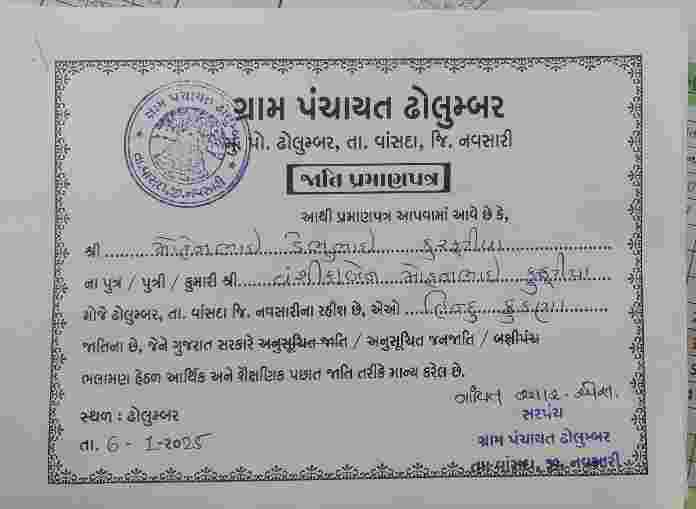 ગ્રામ પંચાયત ઢોલુમ્બર
પો. ઢોલુમ્બર, તા. વાંસદા, જિ. નવસારી
જાતિ પ્રમાણપત્ર
આથી પ્રમાણપત્ર આપવામાં આવે છે કે,
શ્રી
ના પુત્ર / પુત્રી / કુમારી શ્રી
મોજે ઢોલુમ્બર, તા. વાંસદા જિ. નવસારીના રહીશ છે, એઓ હિન્દુ કુકણા
જાતિના છે, જેને ગુજરાત સરકારે અનુસૂચિત જાતિ / અનુસૂચિત જનજાતિ / બક્ષીપંચ
ભલામણ હેઠળ આર્થિક અને શૈક્ષણિક પછાત જાતિ તરીકે માન્ય કરેલ છે.
સ્થળ : ઢોલુમ્બર
તા. 6 - 1-2025
સરપંચ
ગ્રામ પંચાયત ઢોલુમ્બર
તા. વાંસદા, જી. નવસારી
ગ્રામ પંચાયત ઢોલુમ્બર
તા.વાંસદા,જી.નવસારી